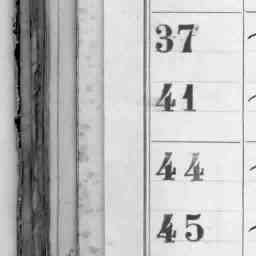 37
41
44
45